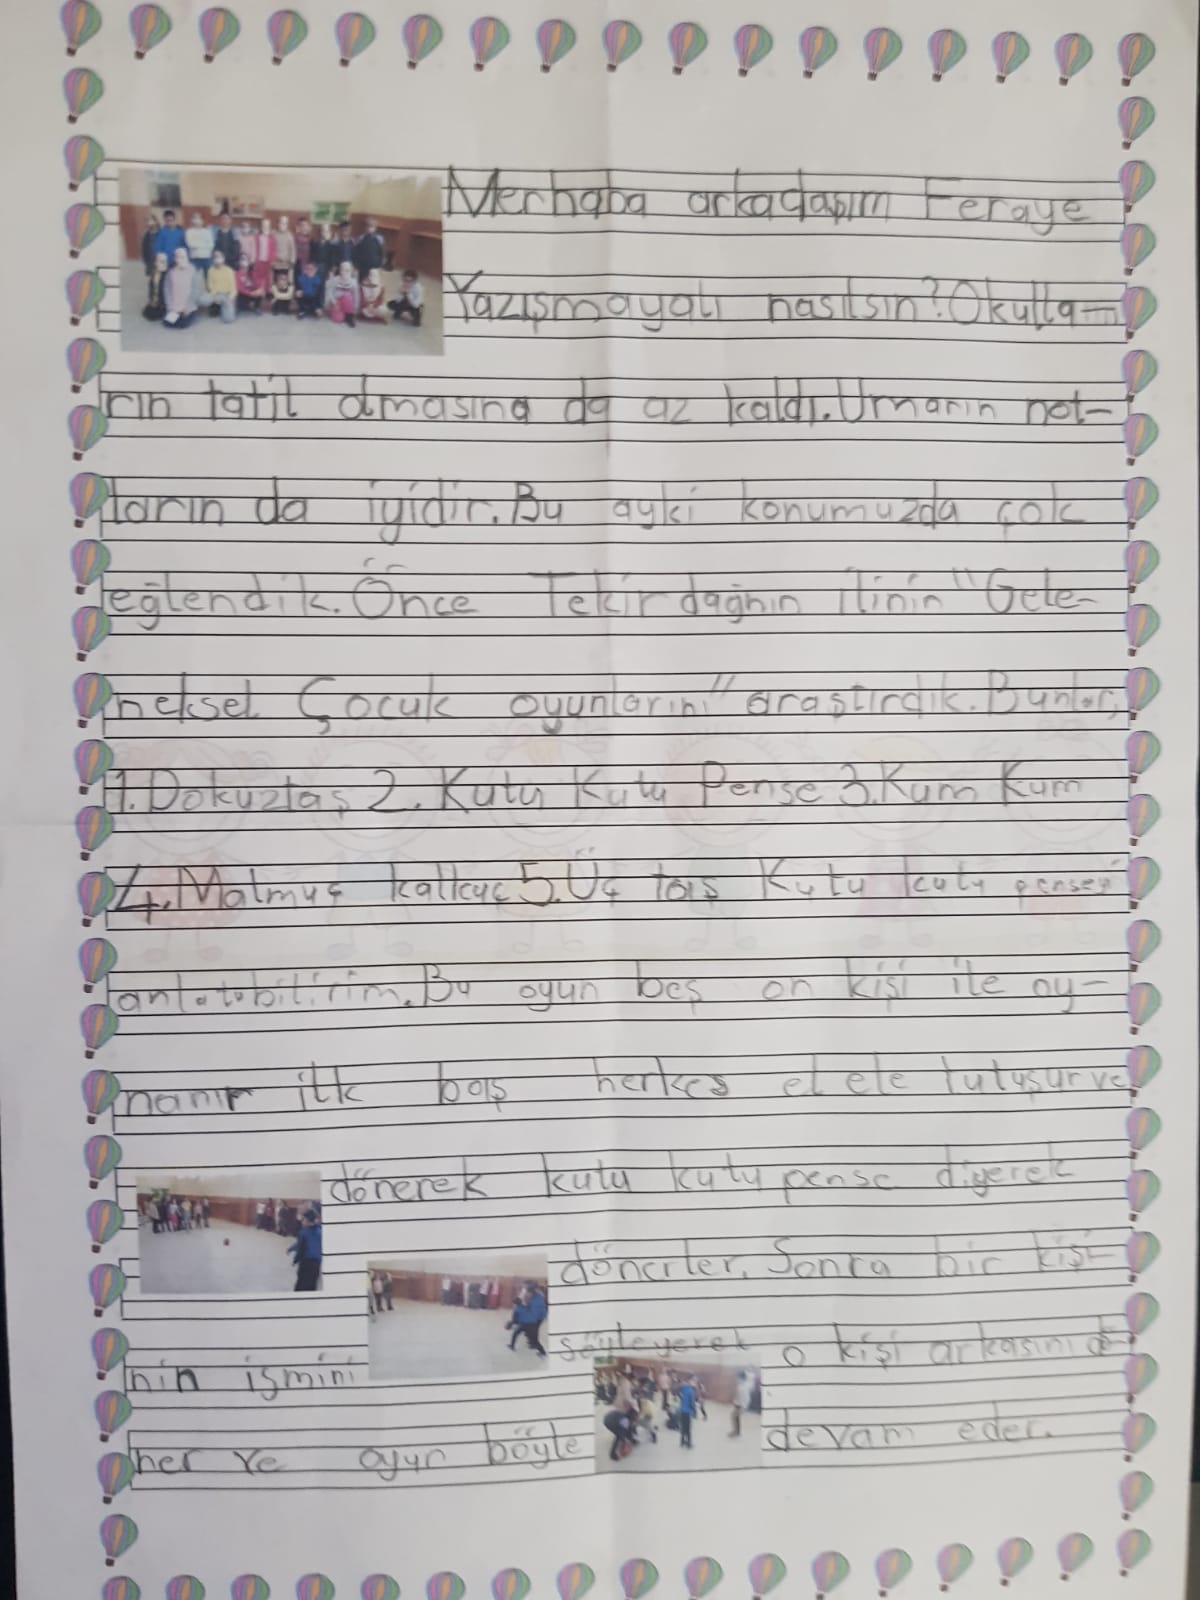 Merhaba arkadaşım Feraye
Yazışmayalı nasılsın? Okulla-
rın tatil olmasına da az kaldı. Umarın not-
ların da iyidir. Bu ayki konumuzda çok
eğlendik. Önce Tekirdağnın ilinin "Gele-
neksel Çocuk oyunlarını" araştırdık. Bunlar,
1. Dokuztaş 2. Kutu Kutu Pense 3. Kum Kum
4. Malmuç kalkuç 5. Üç taş Kutu kutu penseyi
anlatabilirim. Bu oyun beş on kişi ile oy-
nanır ilk baş herkes el ele tutuşur ve
dönerek kutu kutu pense diyerek
dönerler. Sonra bir kişi-
nin ismini söyleyerek o kişi arkasını dö-
ner ve oyun böyle devam eder.